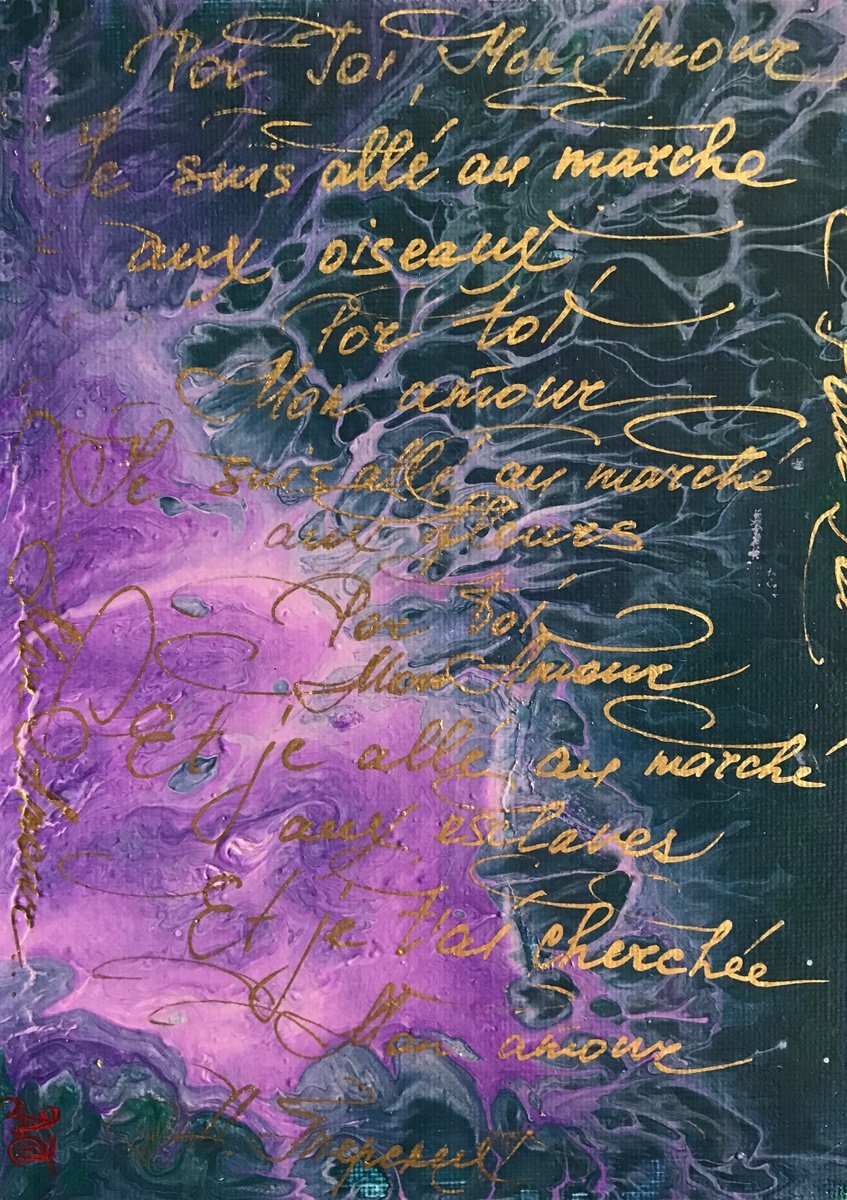 Por Toi Mon Amour
Je suis allé au marche
aux oiseaux
Por toi
Mon amour
Je suis allé au marché
aux fleurs
Por toi
Mon Amour
Et je allé au marché
aux esclaves
Et je t'ai cherchée
Mon amour
Mon Amour